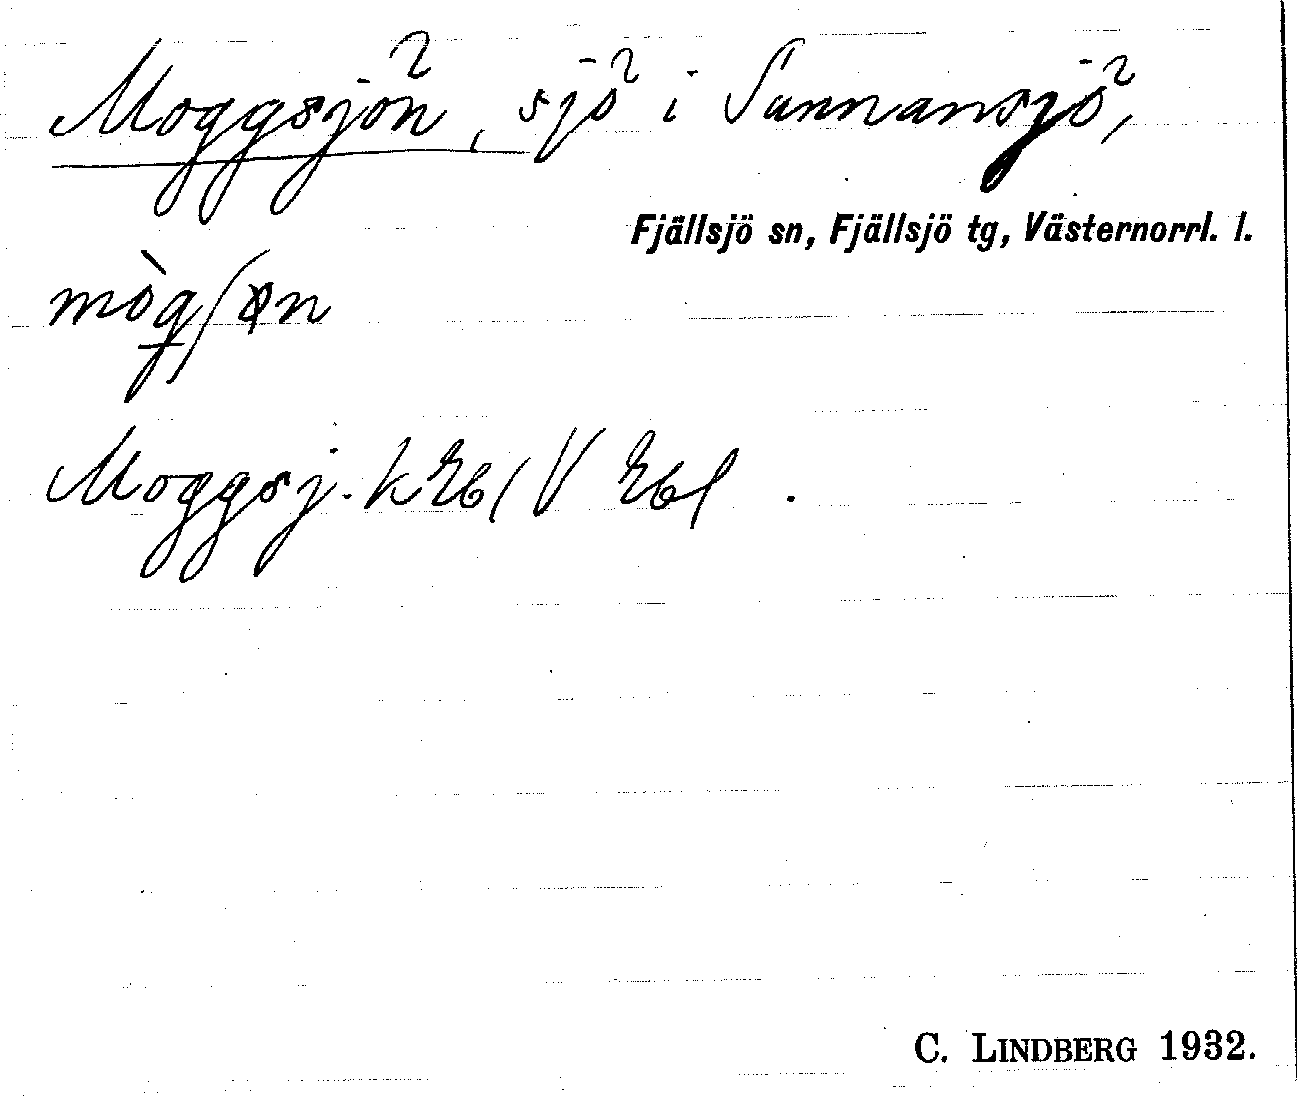 Moggsjön, sjö i Sunnansjö,
Fjällsjö sn, Fjällsjö tg, Västernorrl. l.
Moggsj.
C. LINDBERG 1932.